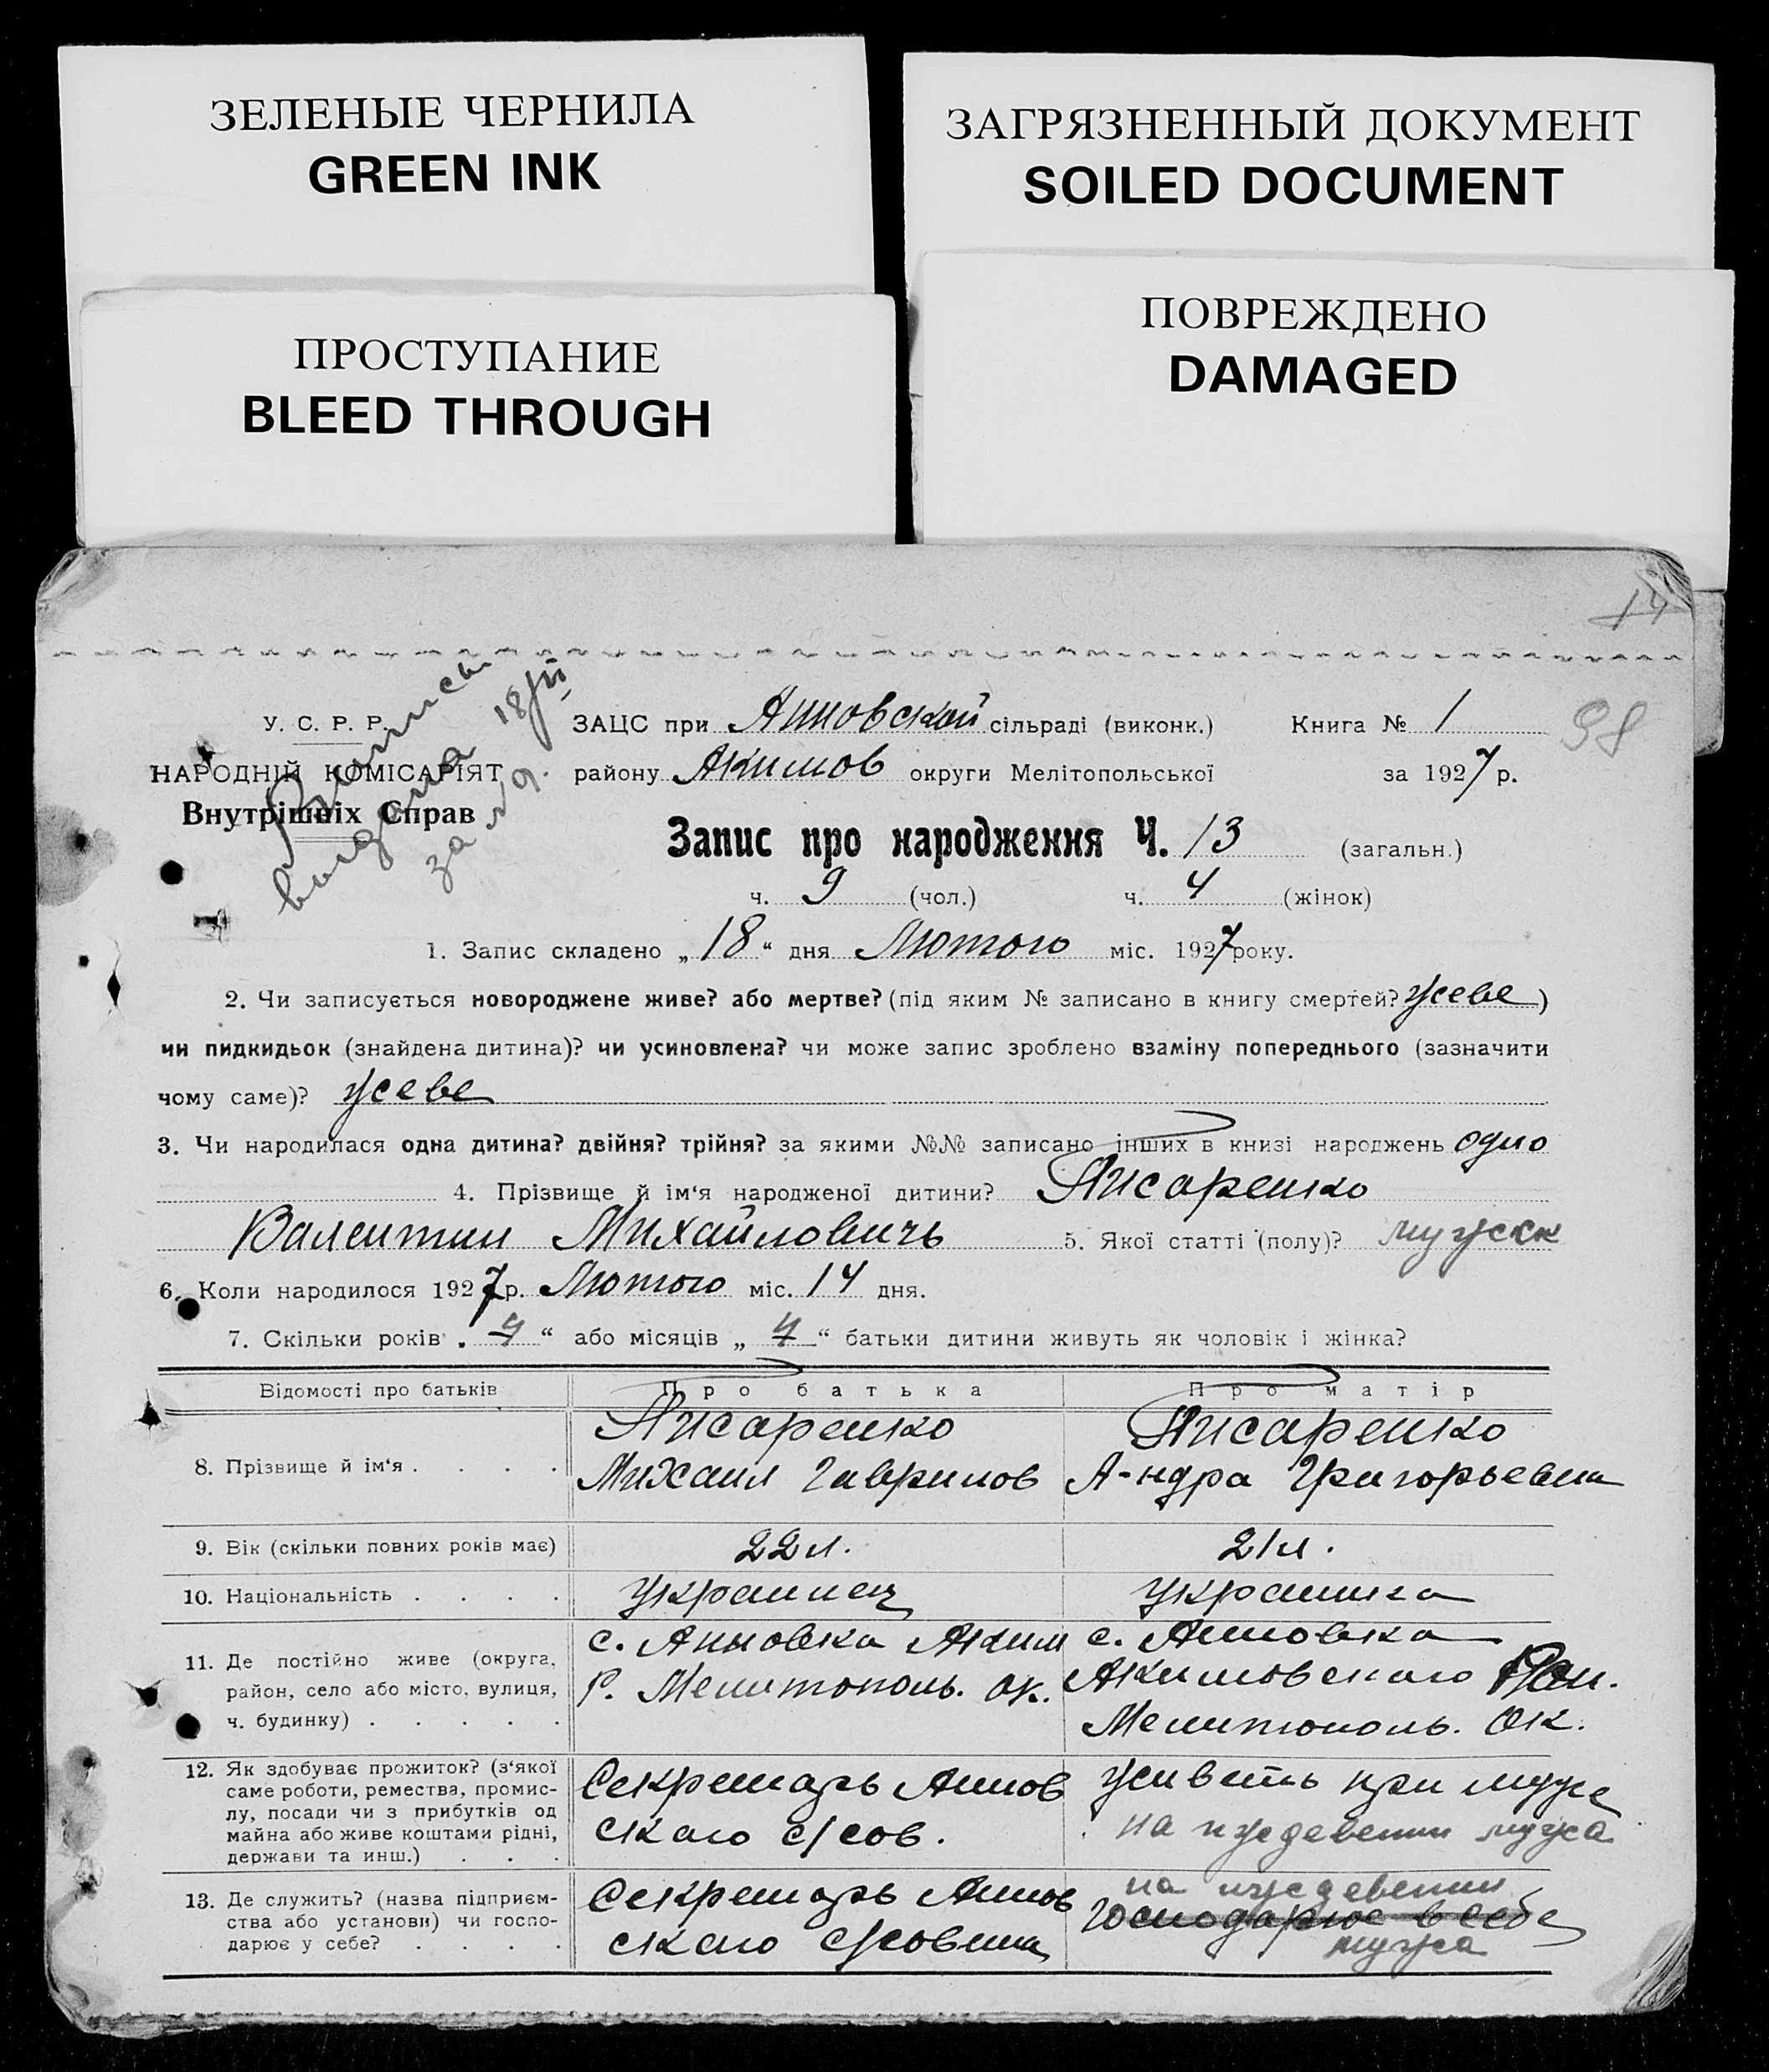 ЗЕЛЕНЫЕ ЧЕРНИЛА
GREEN INK
ЗАГРЯЗНЕННЫЙ ДОКУМЕНТ
SOILED DOCUMENT
ПРОСТУПАНИЕ
BLEED THROUGH
ПОВРЕЖДЕНО
DAMAGED
14
98
Выпись
выдана 18/II
за № 9.
У. С. Р. Р.
НАРОДНІЙ КОМІСАРІЯТ
Внутрішніх Справ
ЗАЦС при Анновской сільраді (виконк.) Книга № 1
району Акимов округи Мелітопольської за 1927 р.
Запис про народження Ч. 13 (загальн.)
ч. 9 (чол.) ч. 4 (жінок)
1. Запис складено „18“ дня Лютого міс. 1927 року.
2. Чи записується новороджене живе? або мертве? (під яким № записано в книгу смертей? живе)
чи пидкидьок (знайдена дитина)? чи усиновлена? чи може запис зроблено взаміну попереднього (зазначити
чому саме)? живе
3. Чи народилася одна дитина? двійня? трійня? за якими №№ записано інших в книзі народжень одно
4. Прізвище й ім‘я народженої дитини? Писаренко
Валентин Михайловичь 5. Якої статті (полу)? мужск
6. Коли народилося 1927 р. Лютого міс. 14 дня.
7. Скільки років „ 4 “ або місяців „ 4 “ батьки дитини живуть як чоловік і жінка?
Відомості про батьків Про батька Про матір
8. Прізвище й ім‘я . . . . Писаренко Михаил Гаврилов Писаренко А-ндра Григорьевна
9. Вік (скільки повних років має) 22 л. 21 л.
10. Національність . . . . украинец украинка
11. Де постійно живе (округа,
район, село або місто, вулиця,
ч. будинку) . . . . .
с. Анновка Аким
Р. Мелитополь. ок.
с. Анновка
Акимовского Рай.
Мелитополь. Ок.
12. Як здобуває прожиток? (з‘якої
саме роботи, ремества, промис-
лу, посади чи з прибутків од
майна або живе коштами рідні,
держави та инш.) . . .
Секретарь Аннов
ского с/сов.
живеть при муже
на иждевении мужа
13. Де служить? (назва підприєм-
ства або установи) чи госпо-
дарює у себе? . . . .
Секретарь Аннов
ского с/совета
на иждевении
господарює в себе
мужа